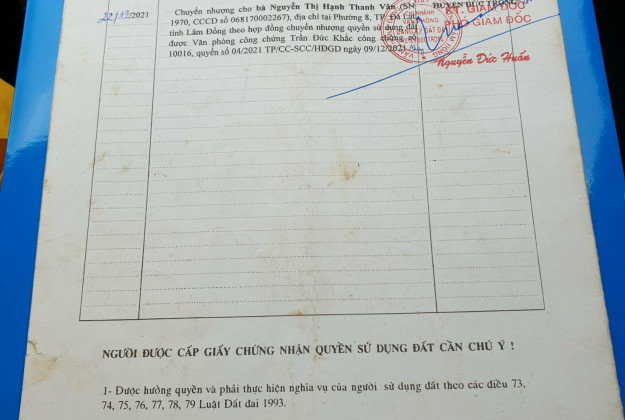 22/12/2021
Chuyển nhượng cho bà Nguyễn Thị Hạnh Thanh Vân (SN
1970, CCCD số 068170002267), địa chỉ tại Phường 8, TP. Đà Lạt
tỉnh Lâm Đồng theo hợp đồng chuyển nhượng quyền sử dụng đất
được Văn phòng công chứng Trần Đức Khắc công chứng số
10016, quyển số 04/2021 TP/CC-SCC/HĐGD ngày 09/12/2021
HUYỆN ĐỨC TRỌNG
KT. GIÁM ĐỐC
PHÓ GIÁM ĐỐC
CHI NHÁNH
VĂN PHÒNG
ĐĂNG KÝ ĐẤT ĐAI
Nguyễn Đức Huấn
NGƯỜI ĐƯỢC CẤP GIẤY CHỨNG NHẬN QUYỀN SỬ DỤNG ĐẤT CẦN CHÚ Ý !
1- Được hưởng quyền và phải thực hiện nghĩa vụ của người sử dụng đất theo các điều 73,
74, 75, 76, 77, 78, 79 Luật Đất đai 1993.